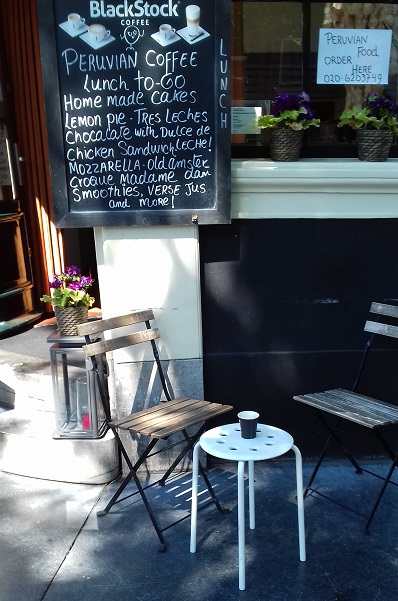 BlackStock
COFFEE
PERUVIAN COFFEE
Lunch to-GO
Home made Cakes
Lemon pie - Tres Leches
Chocolate with Dulce de
LECHE!
Chicken Sandwich
MOZZARELLA - Old amster
Croque Madame
Smoothies, VERSE Jus
and more!
LUNCH
PERUVIAN
Food
ORDER
HERE
020-6203749